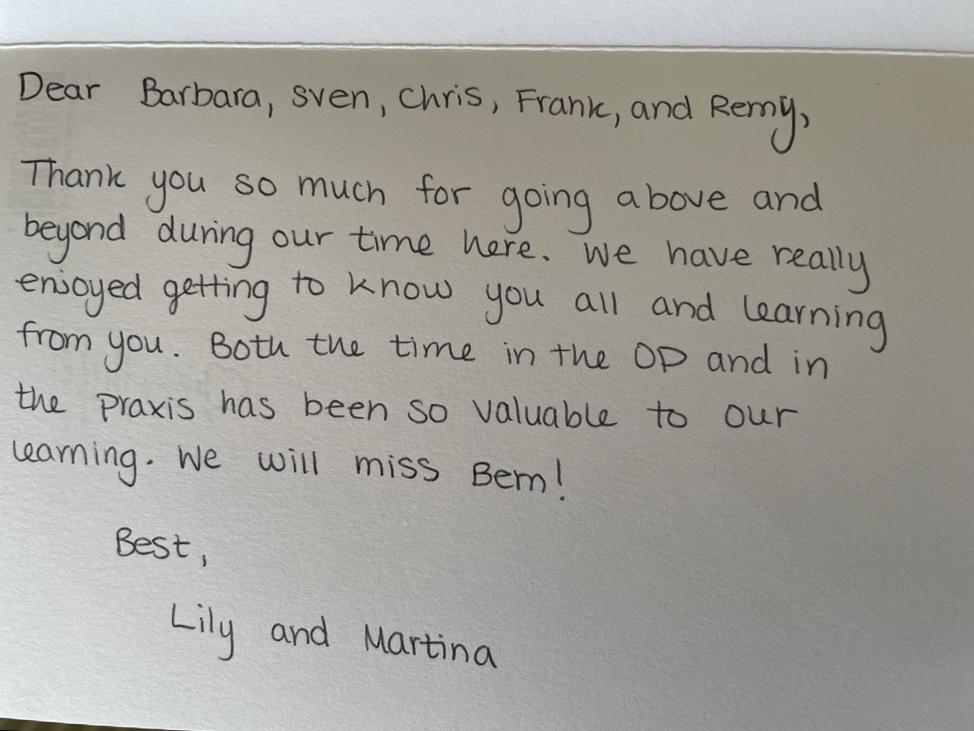 Dear Barbara, Sven, Chris, Frank, and Remy,
Thank you so much for going above and
beyond during our time here. We have really
enjoyed getting to know you all and learning
from you. Both the time in the OP and in
the praxis has been so valuable to our
learning. We will miss Bern!
Best,
Lily and Martina